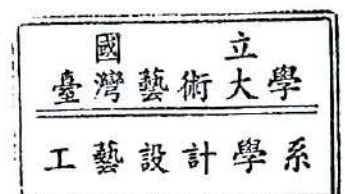 國立
臺灣藝術大學
工藝設計學系